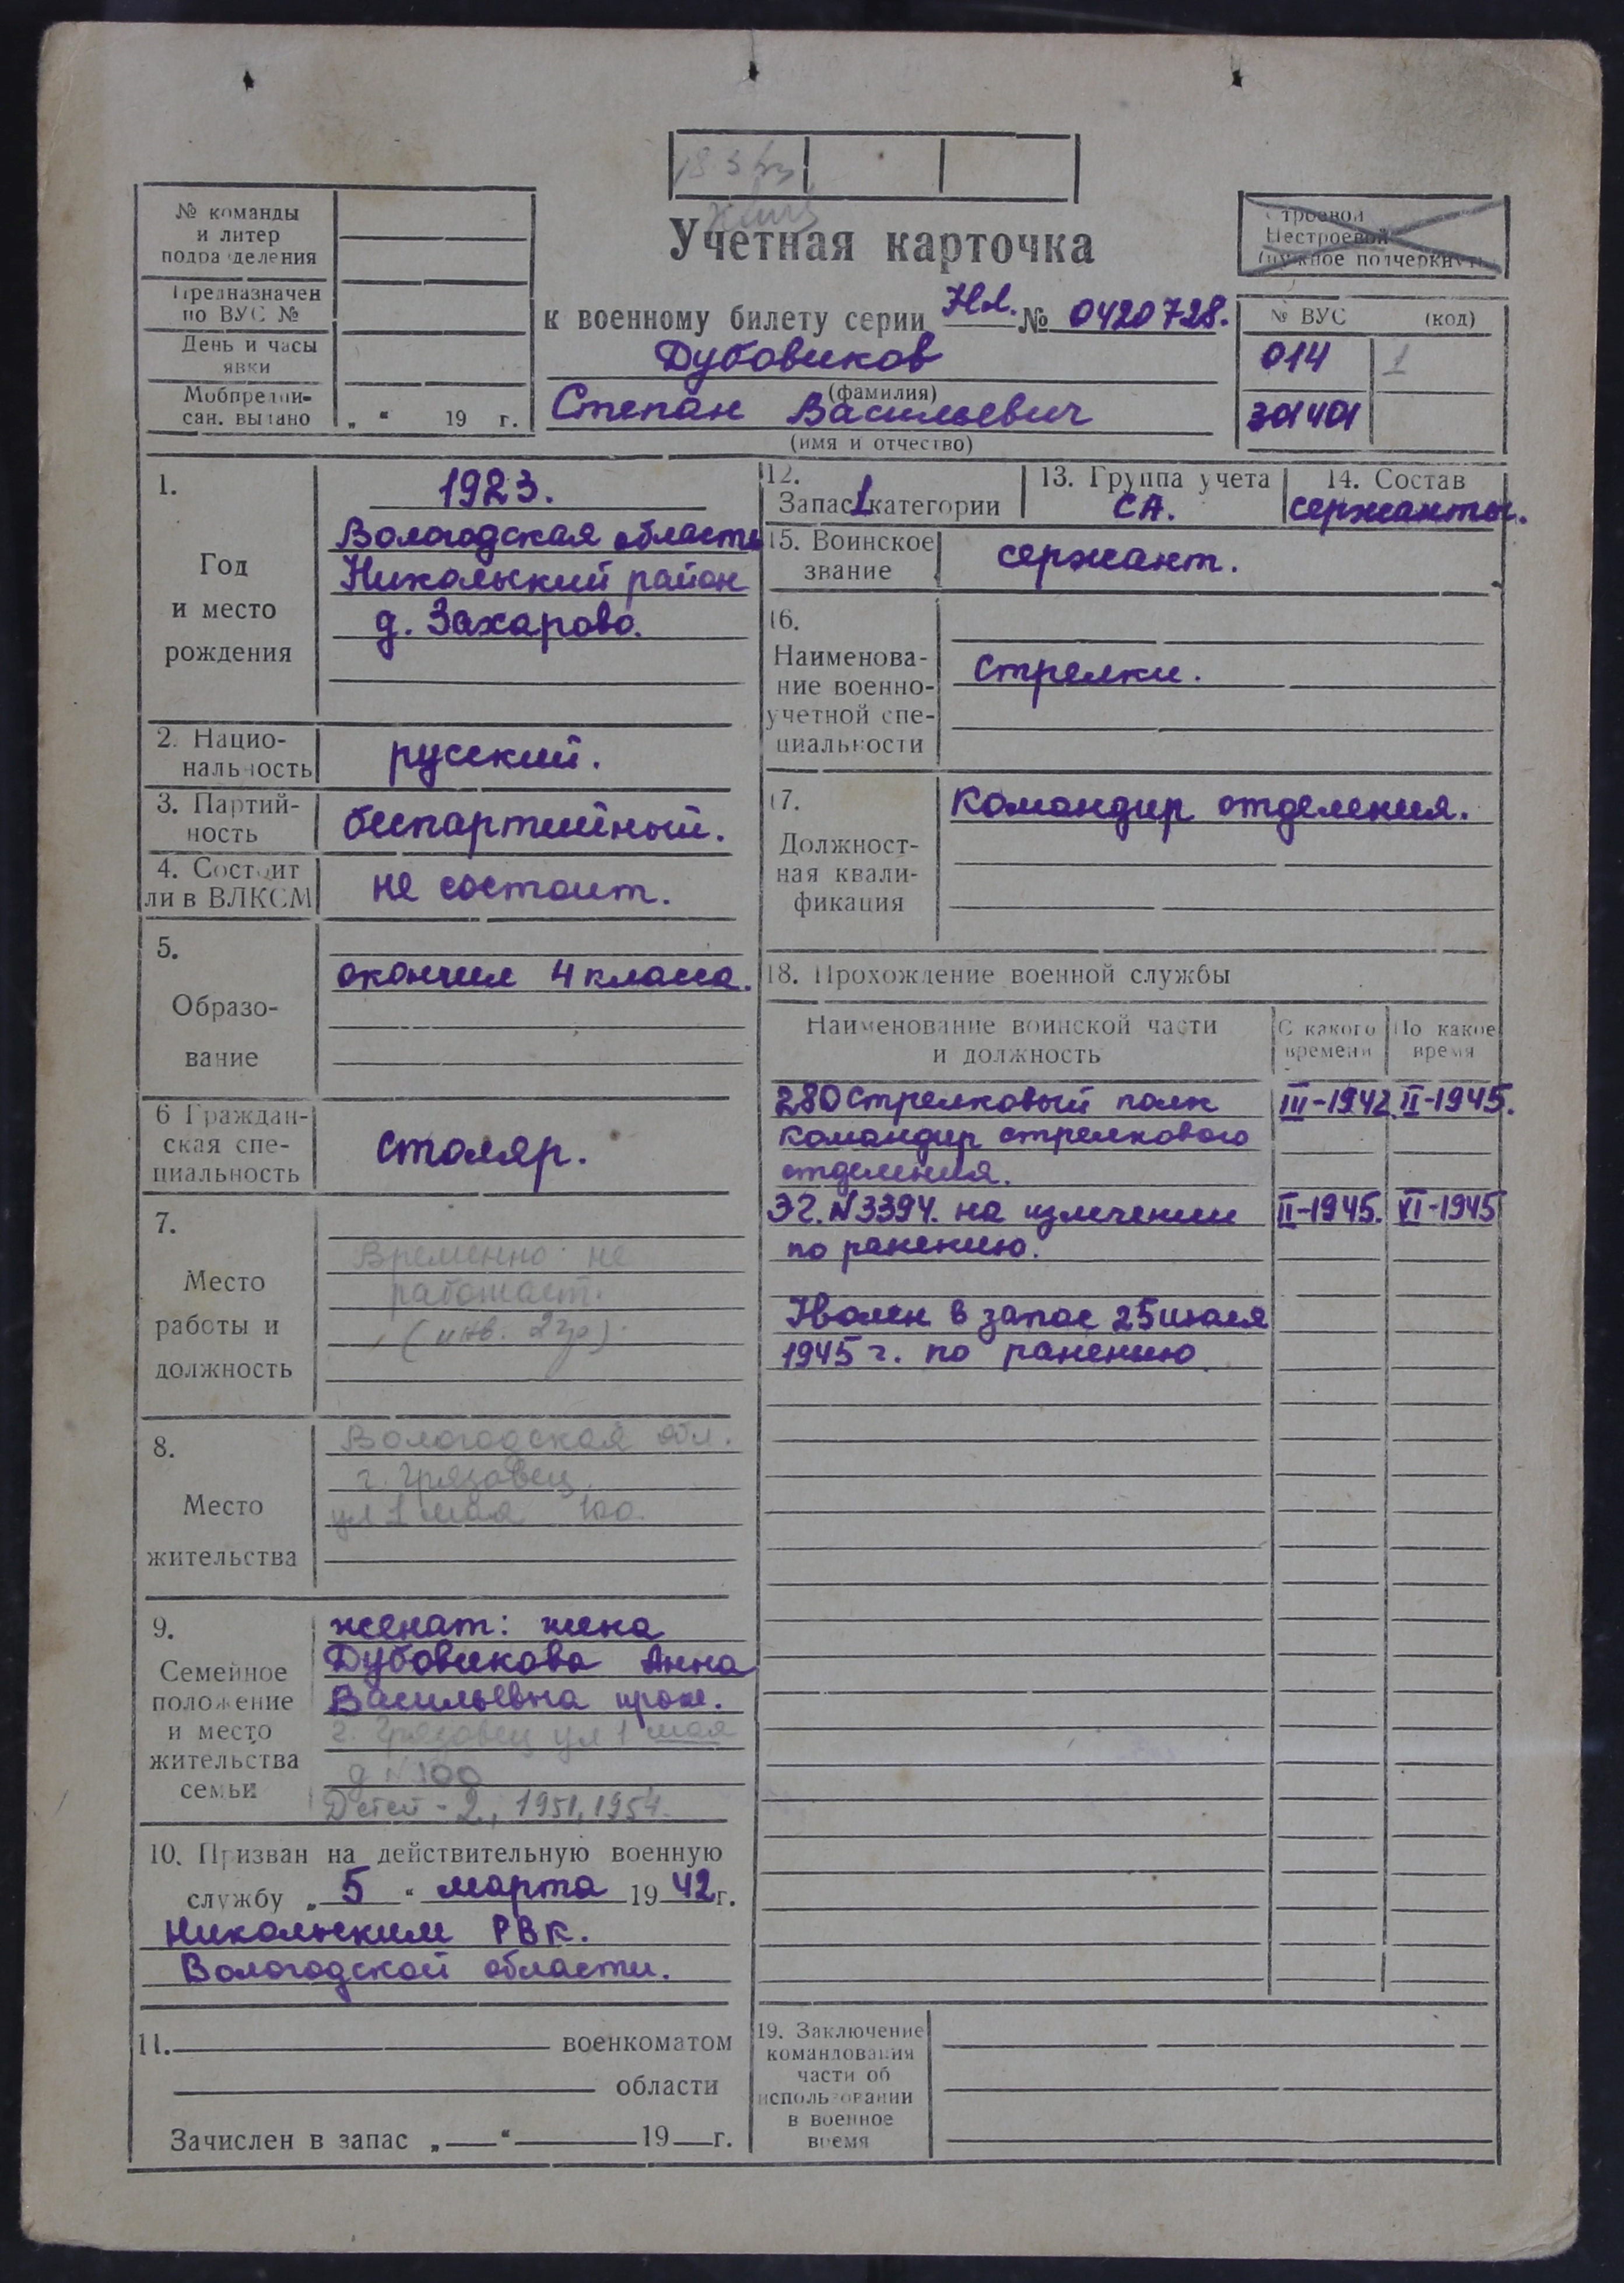 № команды
и литер
подразделения
Предназначен
по ВУС №
День и часы
явки
Мобпредпи-
сан. выдано „ “ 19 г.
Учетная карточка
к военному билету серии НЛ. № 0420728.
Дубовиков
(фамилия)
Степан Васильевич
(имя и отчество)
Строевой
Нестроевой
(нужное подчеркнуть)
№ ВУС (код)
014 1
301401
1.
Год
и место
рождения
1923.
Вологодская область
Никольский район
д. Захарово.
2. Нацио-
нальность
русский.
3. Партий-
ность
беспартийный.
4. Состоит
ли в ВЛКСМ
не состоит.
5.
Образо-
вание
окончил 4 класса.
6 Граждан-
ская спе-
циальность
столяр.
7.
Место
работы и
должность
Временно не
работает.
(инв. 2 гр).
8.
Место
жительства
Вологодская обл.
г. Грязовец
ул 1 мая 100.
9.
Семейное
положение
и место
жительства
семьи
женат: жена
Дубовикова Анна
Васильевна прож.
г. Грязовец ул 1 мая
д N 100
Детей - 2, 1951, 1954.
10. Призван на действительную военную
службу „ 5 “ марта 19 42 г.
Никольским РВК.
Вологодской области.
11. военкоматом
области
Зачислен в запас „ “ 19 г.
12.
Запас 1 категории
13. Группа учета
СА.
14. Состав
сержанты.
15. Воинское
звание
сержант.
16.
Наименова-
ние военно-
учетной спе-
циальности
стрелки.
17.
Должност-
ная квали-
фикация
Командир отделения.
18. Прохождение военной службы
Наименование воинской части
и должность
С какого
времени
По какое
время
280 Стрелковый полк III-1942 II-1945.
командир стрелкового
отделения.
ЭГ. N 3394. на излечении II-1945. VI-1945
по ранению.
Уволен в запас 25 июля
1945 г. по ранению.
19. Заключение
командования
части об
использовании
в военное
время